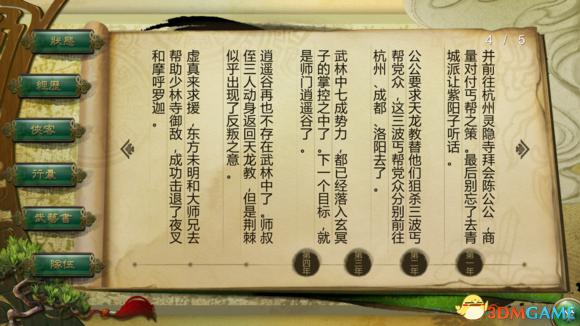 狀態
經歷
俠客
行囊
武藝書
隊伍
4 / 5
井前往杭州灵隐寺拜会陈公公，商
量对付丐帮之策。最后别忘了去青
城派让紫阳子听话。
公公要求天龙教替他们狙杀三波丐
帮党众，这三波丐帮党众分别前往
杭州、成都、洛阳去了。
武林中七成势力，都已经落入玄冥
子的掌控之中了。下一个目标，就
是师门逍遥谷了。
逍遥谷再也不存在武林中了。师叔
侄三人动身返回天龙教，但是荆棘
似乎出现了反叛之意。
虚真来求援，东方未明和大师兄去
帮助少林寺御敌，成功击退了夜叉
和摩呼罗迦。
第一年
第二年
第三年
第四年
3DMGAME